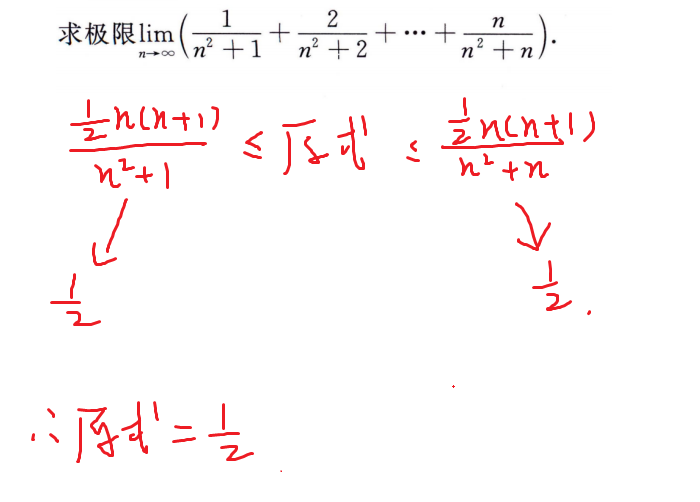 求极限lim_{n→∞}(1/(n²+1) + 2/(n²+2) + ⋯ + n/(n²+n)).
(½n(n+1))/(n²+1) ≤ 原式 ≤ (½n(n+1))/(n²+n)
↙ ↘
1/2 1/2.
∴原式 = 1/2